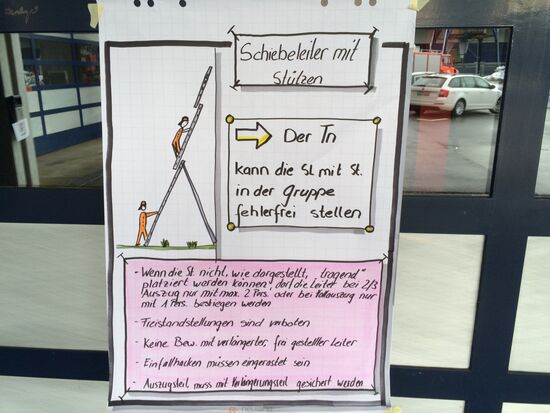 Schiebeleiter mit
Stützen
Der Tn
kann die SL mit St.
in der Gruppe
fehlerfrei stellen
- Wenn die St. nicht, wie dargestellt, "tragend"
platziert warden können, darf die Leiter bei 2/3
Auszug nur mit max. 2 Pers. oder bei Vollauszug nur
mit 1 Pers. bestiegen werden
- Freistandstellungen sind verboten
- Keine Bew. mit verlängerter, frei gestellter Leiter
- Einfallhacken müssen eingerastet sein
- Auszugsteil, muss mit Verlängerungsseil gesichert werden